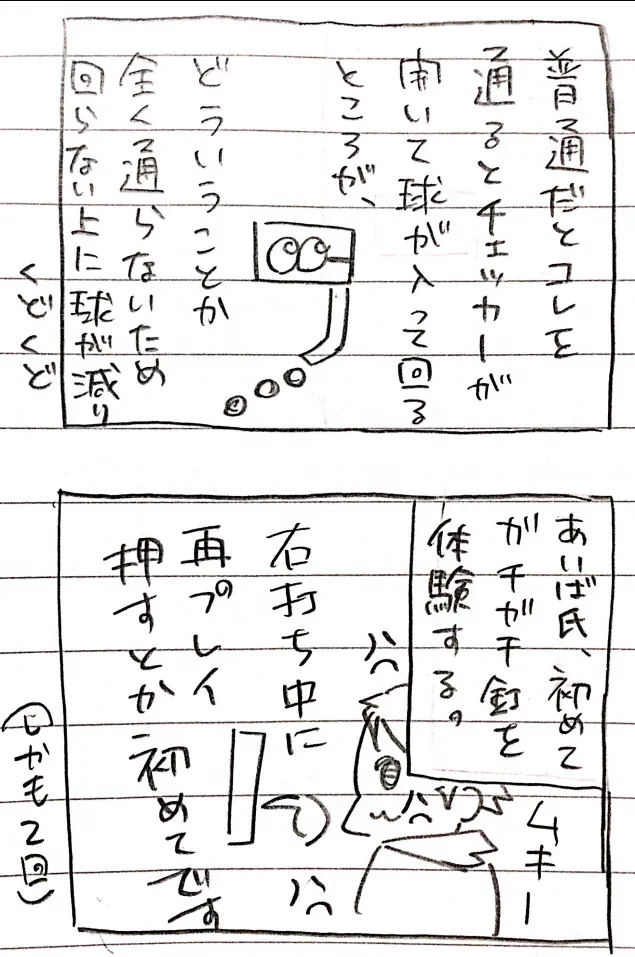 普通だとコレを
通るとチェッカーが
開いて球が入って回る
ところが、
どういうことか
全く通らないため
回らない上に球が減り
くどくど
あいば氏、初めて
ガチガチ釘を
体験する。
ムキー
右打ち中に
再プレイ
押すとか初めてです
(しかも2回)